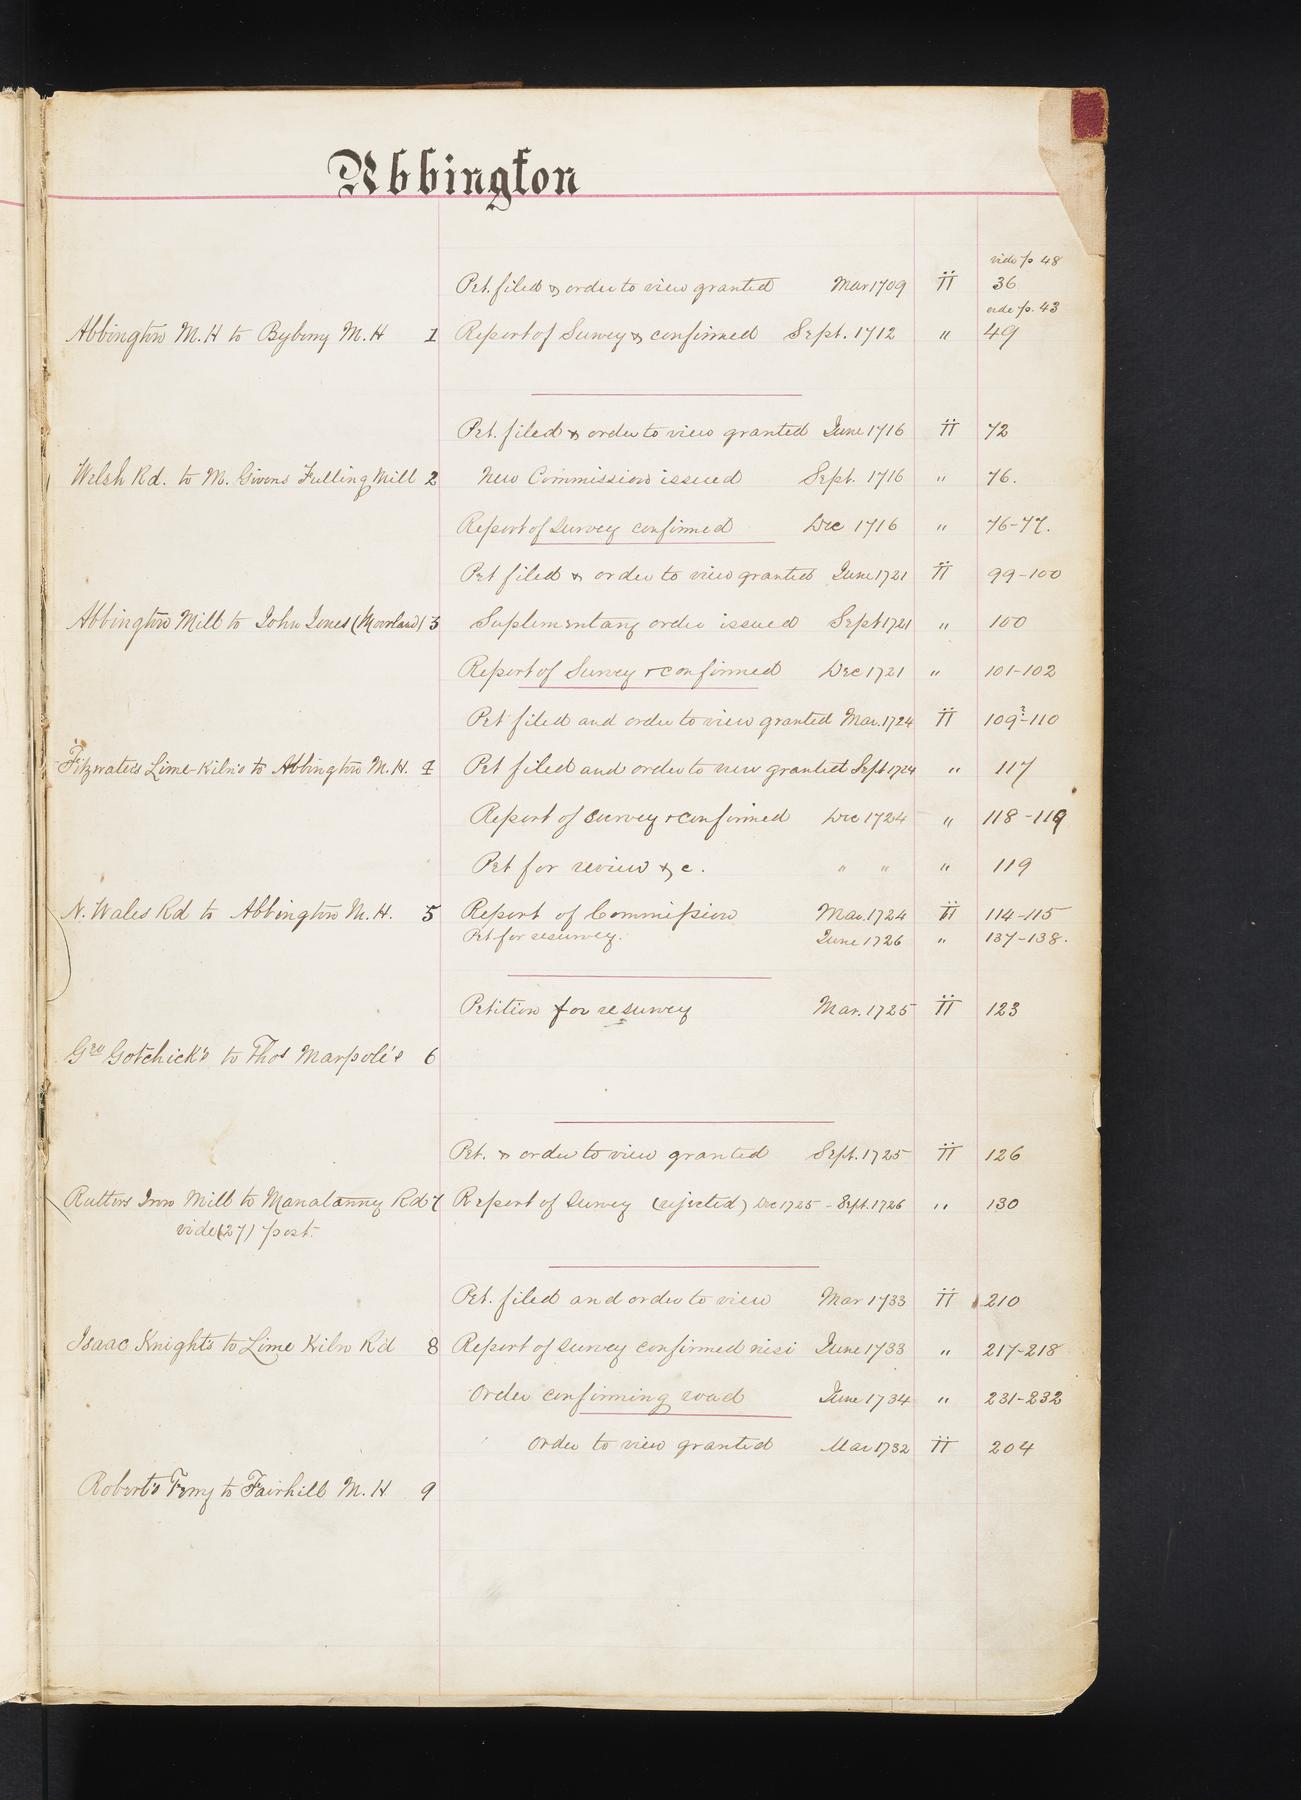 Abbington
vide p 48
Pet. filed & order to view granted Mar 1709 II 36
vide p. 43
Abbington M.H to Byberry M.H 1 Report of Survey & confirmed Sept. 1712 " 49
Pet. filed & order to view granted June 1716 II 72
Welsh Rd. to M. Givens Fulling Mill 2 New Commission issued Sept. 1716 " 76.
Report of Survey confirmed Dec 1716 " 76-77.
Pet filed & order to view granted June 1721 II 99-100
Abbington Mill to John Jones (Moorland) 3 Suplementary order issued Sept 1721 " 100
Report of Survey & confirmed Dec 1721 " 101-102
Pet filed and order to view granted Mar. 1724 II 109-110
Fitzwaters Lime-Kiln's to Abbington M.H. 4 Pet filed and order to view granted Sept 1724 " 117
Report of Survey & confirmed Dec 1724 " 118-119
Pet for review & c. " " " 119
N. Wales Rd to Abbington M.H. 5 Report of Commission Mar. 1724 II 114-115
Pet for resurvey. June 1726 " 137-138.
Petition for resurvey Mar. 1725 II 123
Geo Gotchick's to Thos Marpole's 6
Pet. & order to view granted Sept. 1725 II 126
Rutters Inn Mill to Manatanny Rd 7 Report of Survey (rejected) Dec 1725 - Sept. 1726 " 130
vide (27) post.
Pet. filed and order to view Mar 1733 II 210
Isaac Knights to Lime Kiln Rd 8 Report of Survey confirmed nisi June 1733 " 217-218
Order confirming road June 1734 " 231-232
Order to view granted Mar 1732 II 204
Robert's Ferry to Fairhill M.H 9